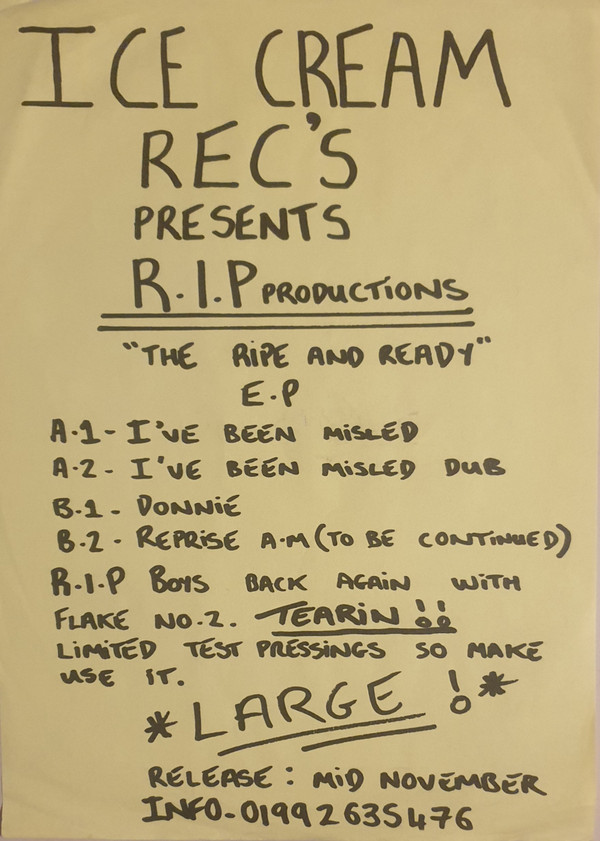 ICE CREAM
REC'S
PRESENTS
R.I.P PRODUCTIONS
"THE RIPE AND READY"
E.P
A.1 - I'VE BEEN MISLED
A.2 - I'VE BEEN MISLED DUB
B.1 - DONNIE
B.2 - REPRISE A.M (TO BE CONTINUED)
R.I.P BOYS BACK AGAIN WITH
FLAKE NO.2. TEARIN !!
LIMITED TEST PRESSINGS SO MAKE
USE IT.
* LARGE ! *
RELEASE : MID NOVEMBER
INFO - 01992635476